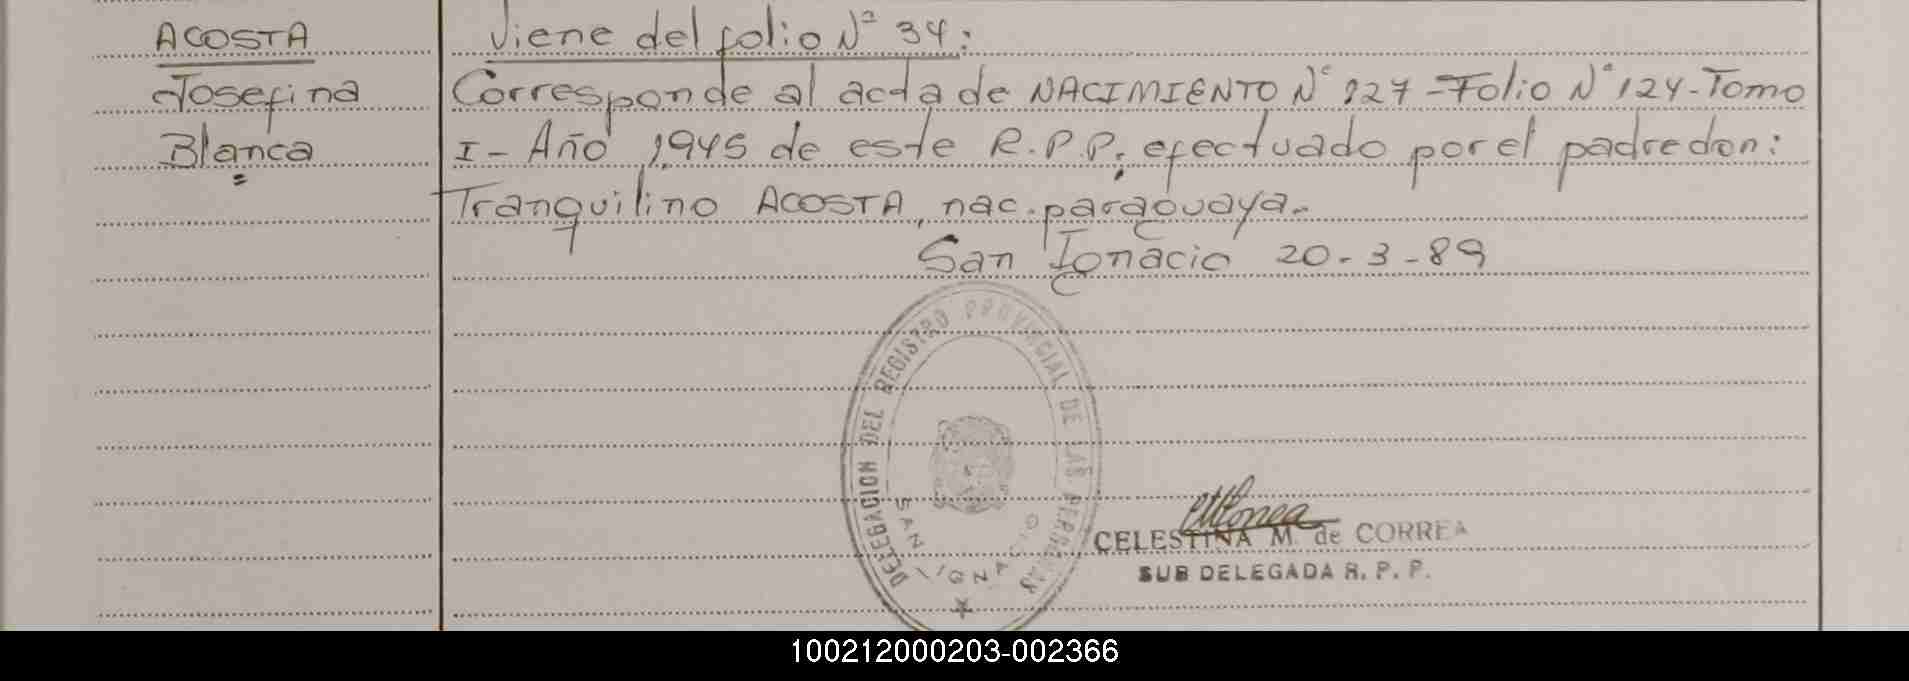 ACOSTA
Josefina
Blanca
Viene del folio Nº 34:
Corresponde al acta de NACIMIENTO Nº 127 - Folio Nº 124 - Tomo
I - Año 1945 de este R.P.P. efectuado por el padre don:
Tranquilino ACOSTA, nac. paraguaya.
San Ignacio 20-3-89
DELEGACION DEL REGISTRO PROVINCIAL DE LAS PERSONAS
SAN IGNACIO
CELESTINA M. de CORREA
SUB DELEGADA R. P. P.
100212000203-002366